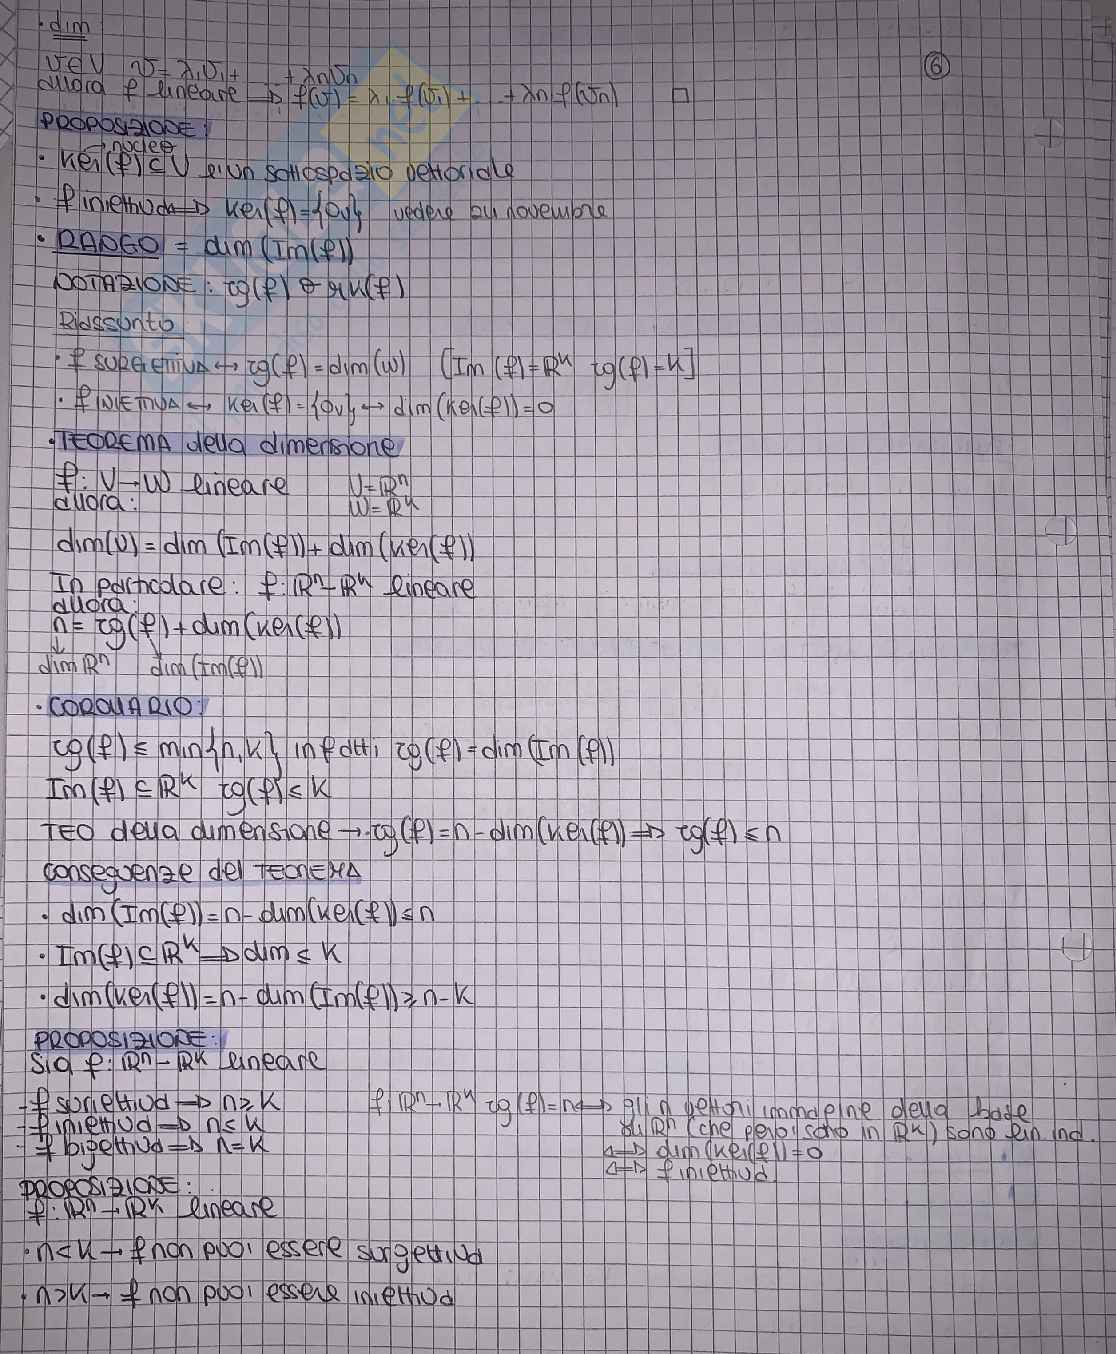 · dim
v∈V v = λ₁v₁ + ... + λnvn
allora f lineare ⇒ f(v) = λ₁ f(v₁) + ... + λn f(vn) □
6
PROPOSIZIONE:
→ nucleo
· Ker(f) ⊆ V è un sottospazio vettoriale
· f iniettiva ⇔ Ker(f) = {0v} vedere 24 novembre
· RANGO = dim (Im(f))
NOTAZIONE: rg(f) o rk(f)
Riassunto
· f SURGETTIVA ↔ rg(f) = dim(W) [Im(f) = ℝᵏ rg(f) = k]
· f INIETTIVA ↔ Ker(f) = {0v} ↔ dim(Ker(f)) = 0
· TEOREMA della dimensione
f: V→W lineare V = ℝⁿ
allora: W = ℝᵏ
dim(V) = dim (Im(f)) + dim(Ker(f))
In particolare: f: ℝⁿ→ℝᵏ lineare
allora:
n = rg(f) + dim(Ker(f))
↓ ↘
dim ℝⁿ dim(Im(f))
· COROLLARIO:
rg(f) ≤ min{n,k} infatti rg(f) = dim(Im(f))
Im(f) ⊆ ℝᵏ rg(f) ≤ k
TEO della dimensione → rg(f) = n - dim(Ker(f)) ⇒ rg(f) ≤ n
conseguenze del TEOREMA
· dim(Im(f)) = n - dim(Ker(f)) ≤ n
· Im(f) ⊆ ℝᵏ ⇒ dim ≤ k
· dim(Ker(f)) = n - dim(Im(f)) ≥ n-k
PROPOSIZIONE:
Sia f: ℝⁿ→ℝᵏ lineare
- f suriettiva ⇒ n ≥ k f: ℝⁿ→ℝᵏ rg(f) = n ⇔ gli n vettori immagine della base
- f iniettiva ⇒ n ≤ k di ℝⁿ (che però sono in ℝᵏ) sono lin ind.
- f bigettiva ⇒ n = k ⇔ dim(Ker(f)) = 0
⇔ f iniettiva
PROPOSIZIONE:
f: ℝⁿ→ℝᵏ lineare
· n < k → f non puoi essere surgettiva
· n > k → f non puoi essere iniettiva